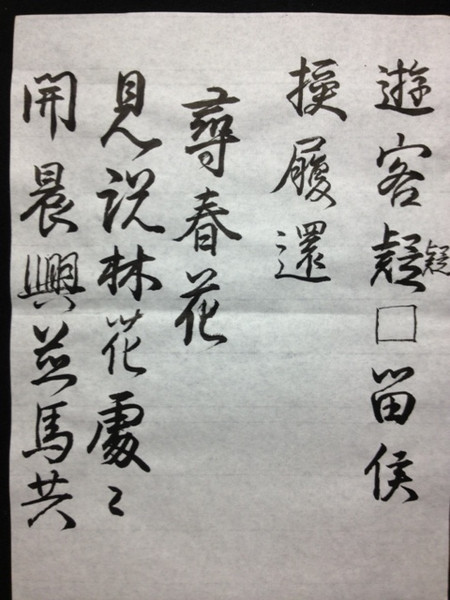 遊客疑□留侯
疑
換履還
尋春花
見説林花處々
開晨興並馬共